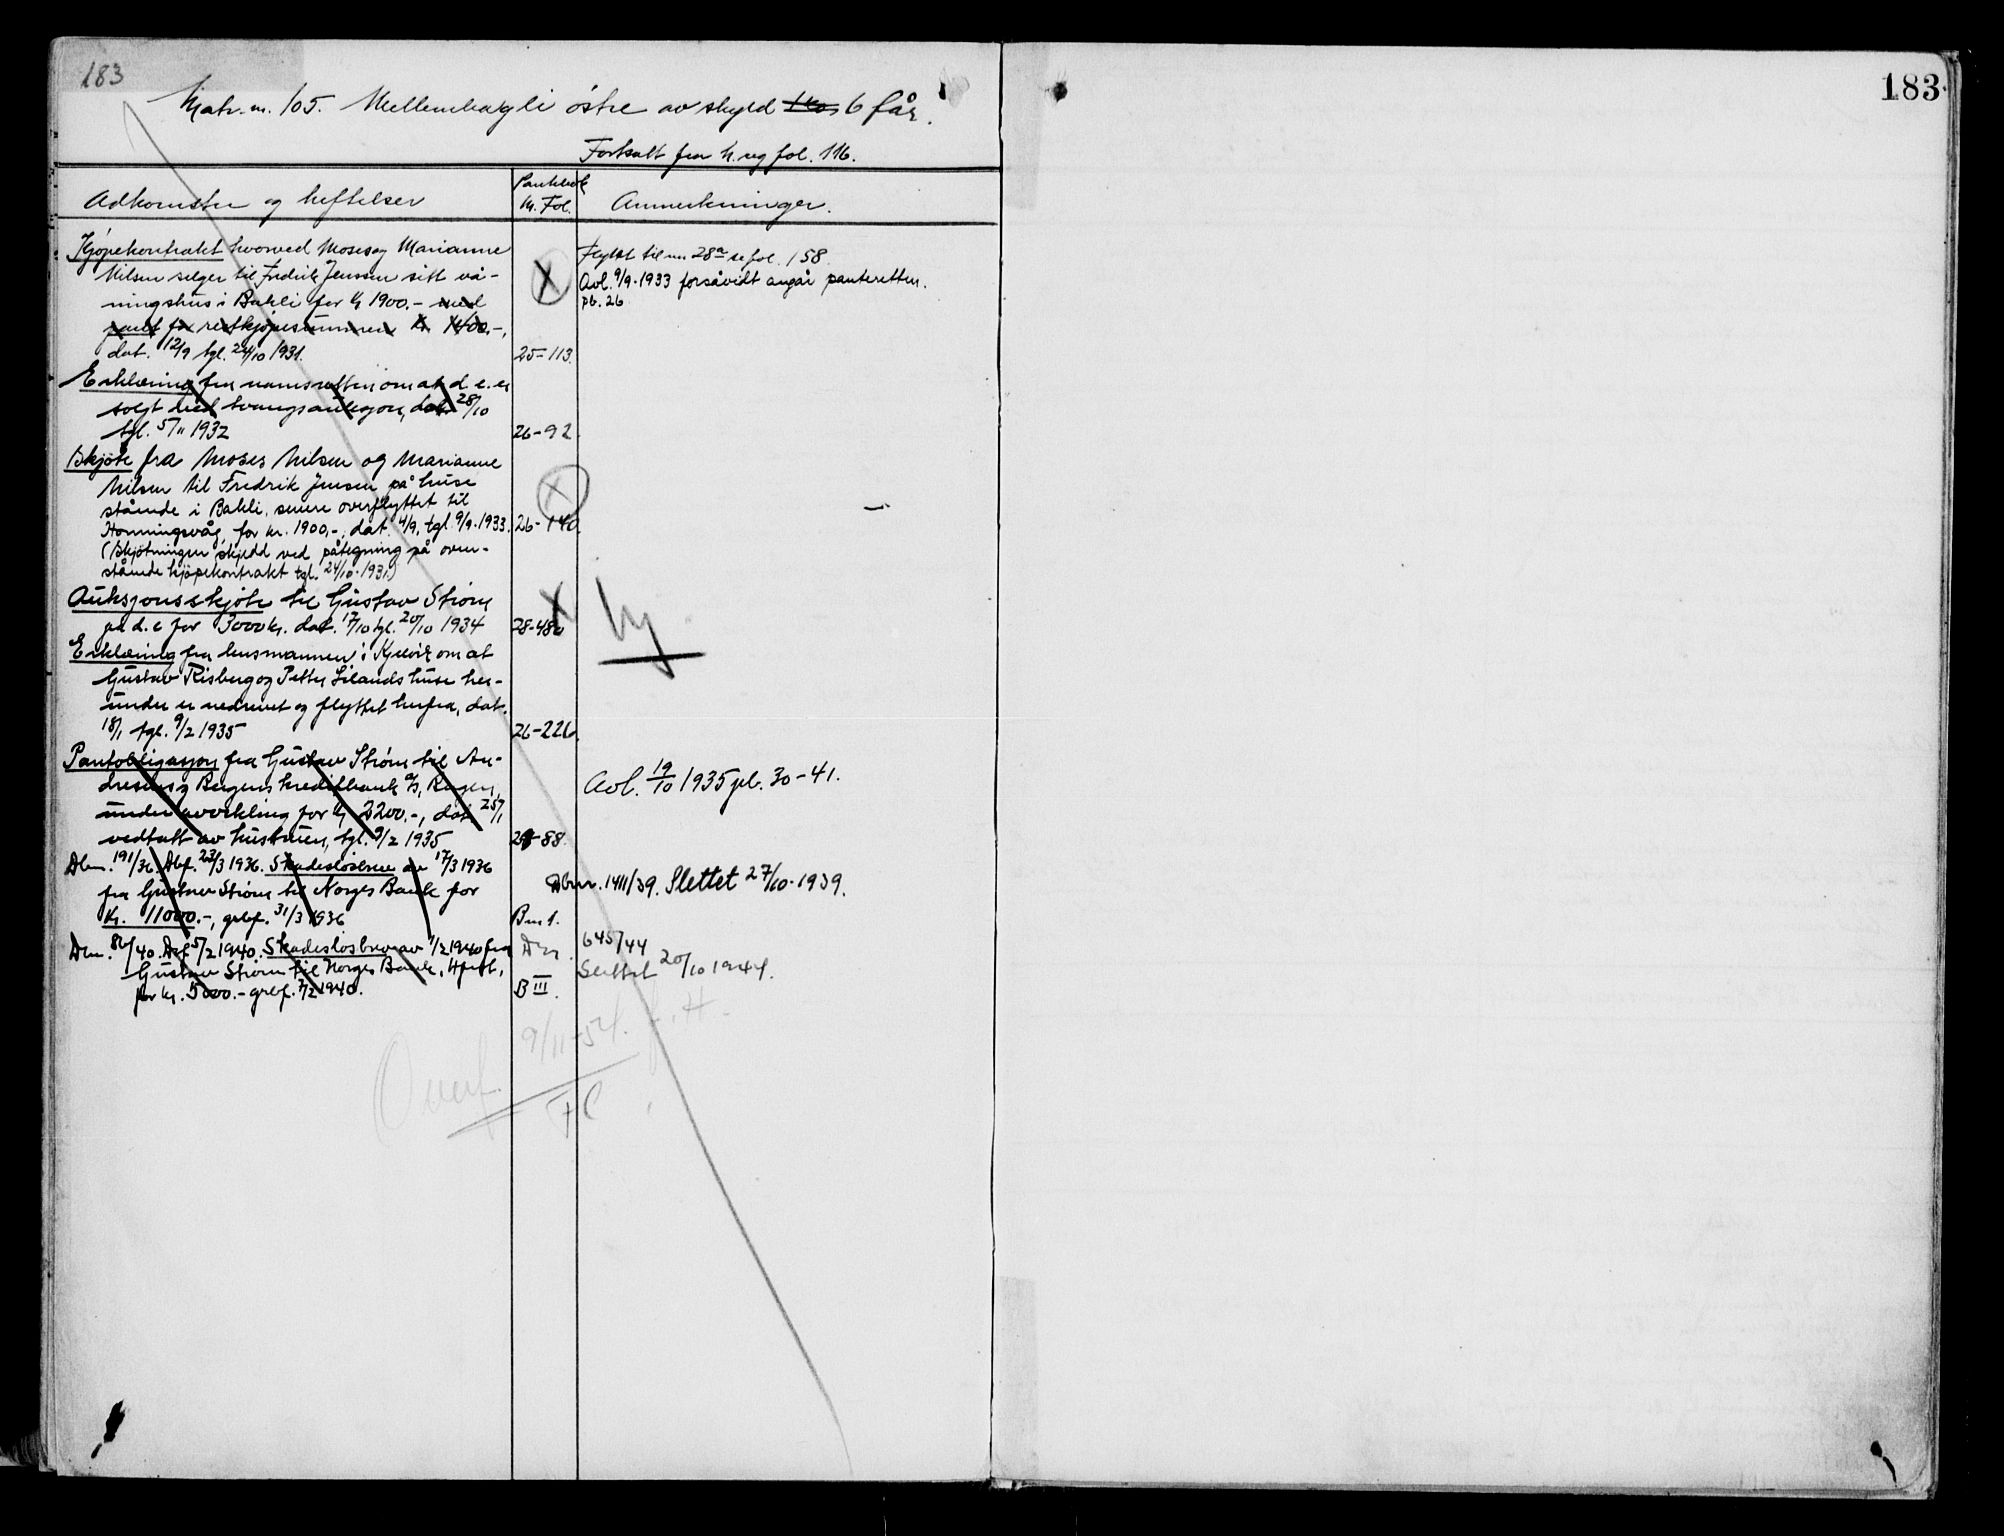 183
183
Matr. nr. 105. Mellembakgli östre av skyld 1 ko 6 får.
Fortsatt fra h. reg fol. 116.
Adkomster og heftelser
Pantebok
Nr. Fol.
Anmerkninger.
Kjøpekontrakt hvorved Moses og Marianne
Nilsen selger til Fredrik Jenssen sitt vå-
ningshus i Bakli for kr 1900.- med
pant for restkjøpesummen kr. 1400.-,
dat. 12/9 tgl. 24/10 1931.
25-113.
Flyttet til nr 28a se fol. 158.
Avl. 9/9-1933 forsåvidt angår panteretten.
pb. 26
Erklæring fra namsretten om at d. e. er
solgt ved tvangsauksjon, dat. 28/10
tgl. 5/11 1932
26-92.
Skjöte fra Moses Nilsen og Marianne
Nilsen til Fredrik Jensen på huse
stående i Bakli, senere overflyttet til
Honningsvåg, for kr. 1900,-, dat. 4/9, tgl. 9/9-1933.
26-140.
(Skjötningen skjedd ved påtegning på oven-
stående kjöpekontrakt tgl. 24/10-1931.)
Auksjonsskjöte til Gustav Ström
på d. e for 3000 kr. dat. 17/10 tgl. 20/10 1934
28-480
Erklæring fra lensmannen i Kjelvik om at
Gustav Risberg og Petter Lilands huse her-
under er nedrevet og flyttet herfra, dat.
18/1 tgl. 9/2 1935
26-226.
Pantobligasjon fra Gustav Ström til An-
dresens og Bergens kreditbank a/s, Bergen,
under avvikling for kr 2200.-, dat 25/1
vedtatt av hustruen, tgl. 9/2 1935
29-88.
Avl. 19/10 1935 pb. 30-41.
Dbnr. 191/36. Dbf. 23/3 1936. Skadeslösbrev av 17/3 1936
fra Gustav Ström til Norges Bank for
kr. 11000.-, grbf. 31/3 1936
Bm 1.
Dbnr. 1411/39. Slettet 27/10-1939.
Dnr. 86/40. Dbf 5/2 1940. Skadeslösbrev av 1/2 1940 fra
Gustav Ström til Norges Bank, Hfest,
for kr. 5000.- grbf. 7/2 1940.
B III.
Dnr. 645/44
Slettet 20/10 1944.
Overf. 9/11-54.